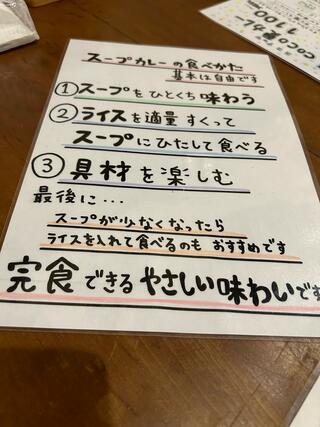 スープカレーの食べかた
基本は自由です
①スープをひとくち味わう
②ライスを適量すくって
スープにひたして食べる
③具材を楽しむ
最後に・・・
スープが少なくなったら
ライスを入れて食べるのもおすすめです
完食できるやさしい味わいです
1100